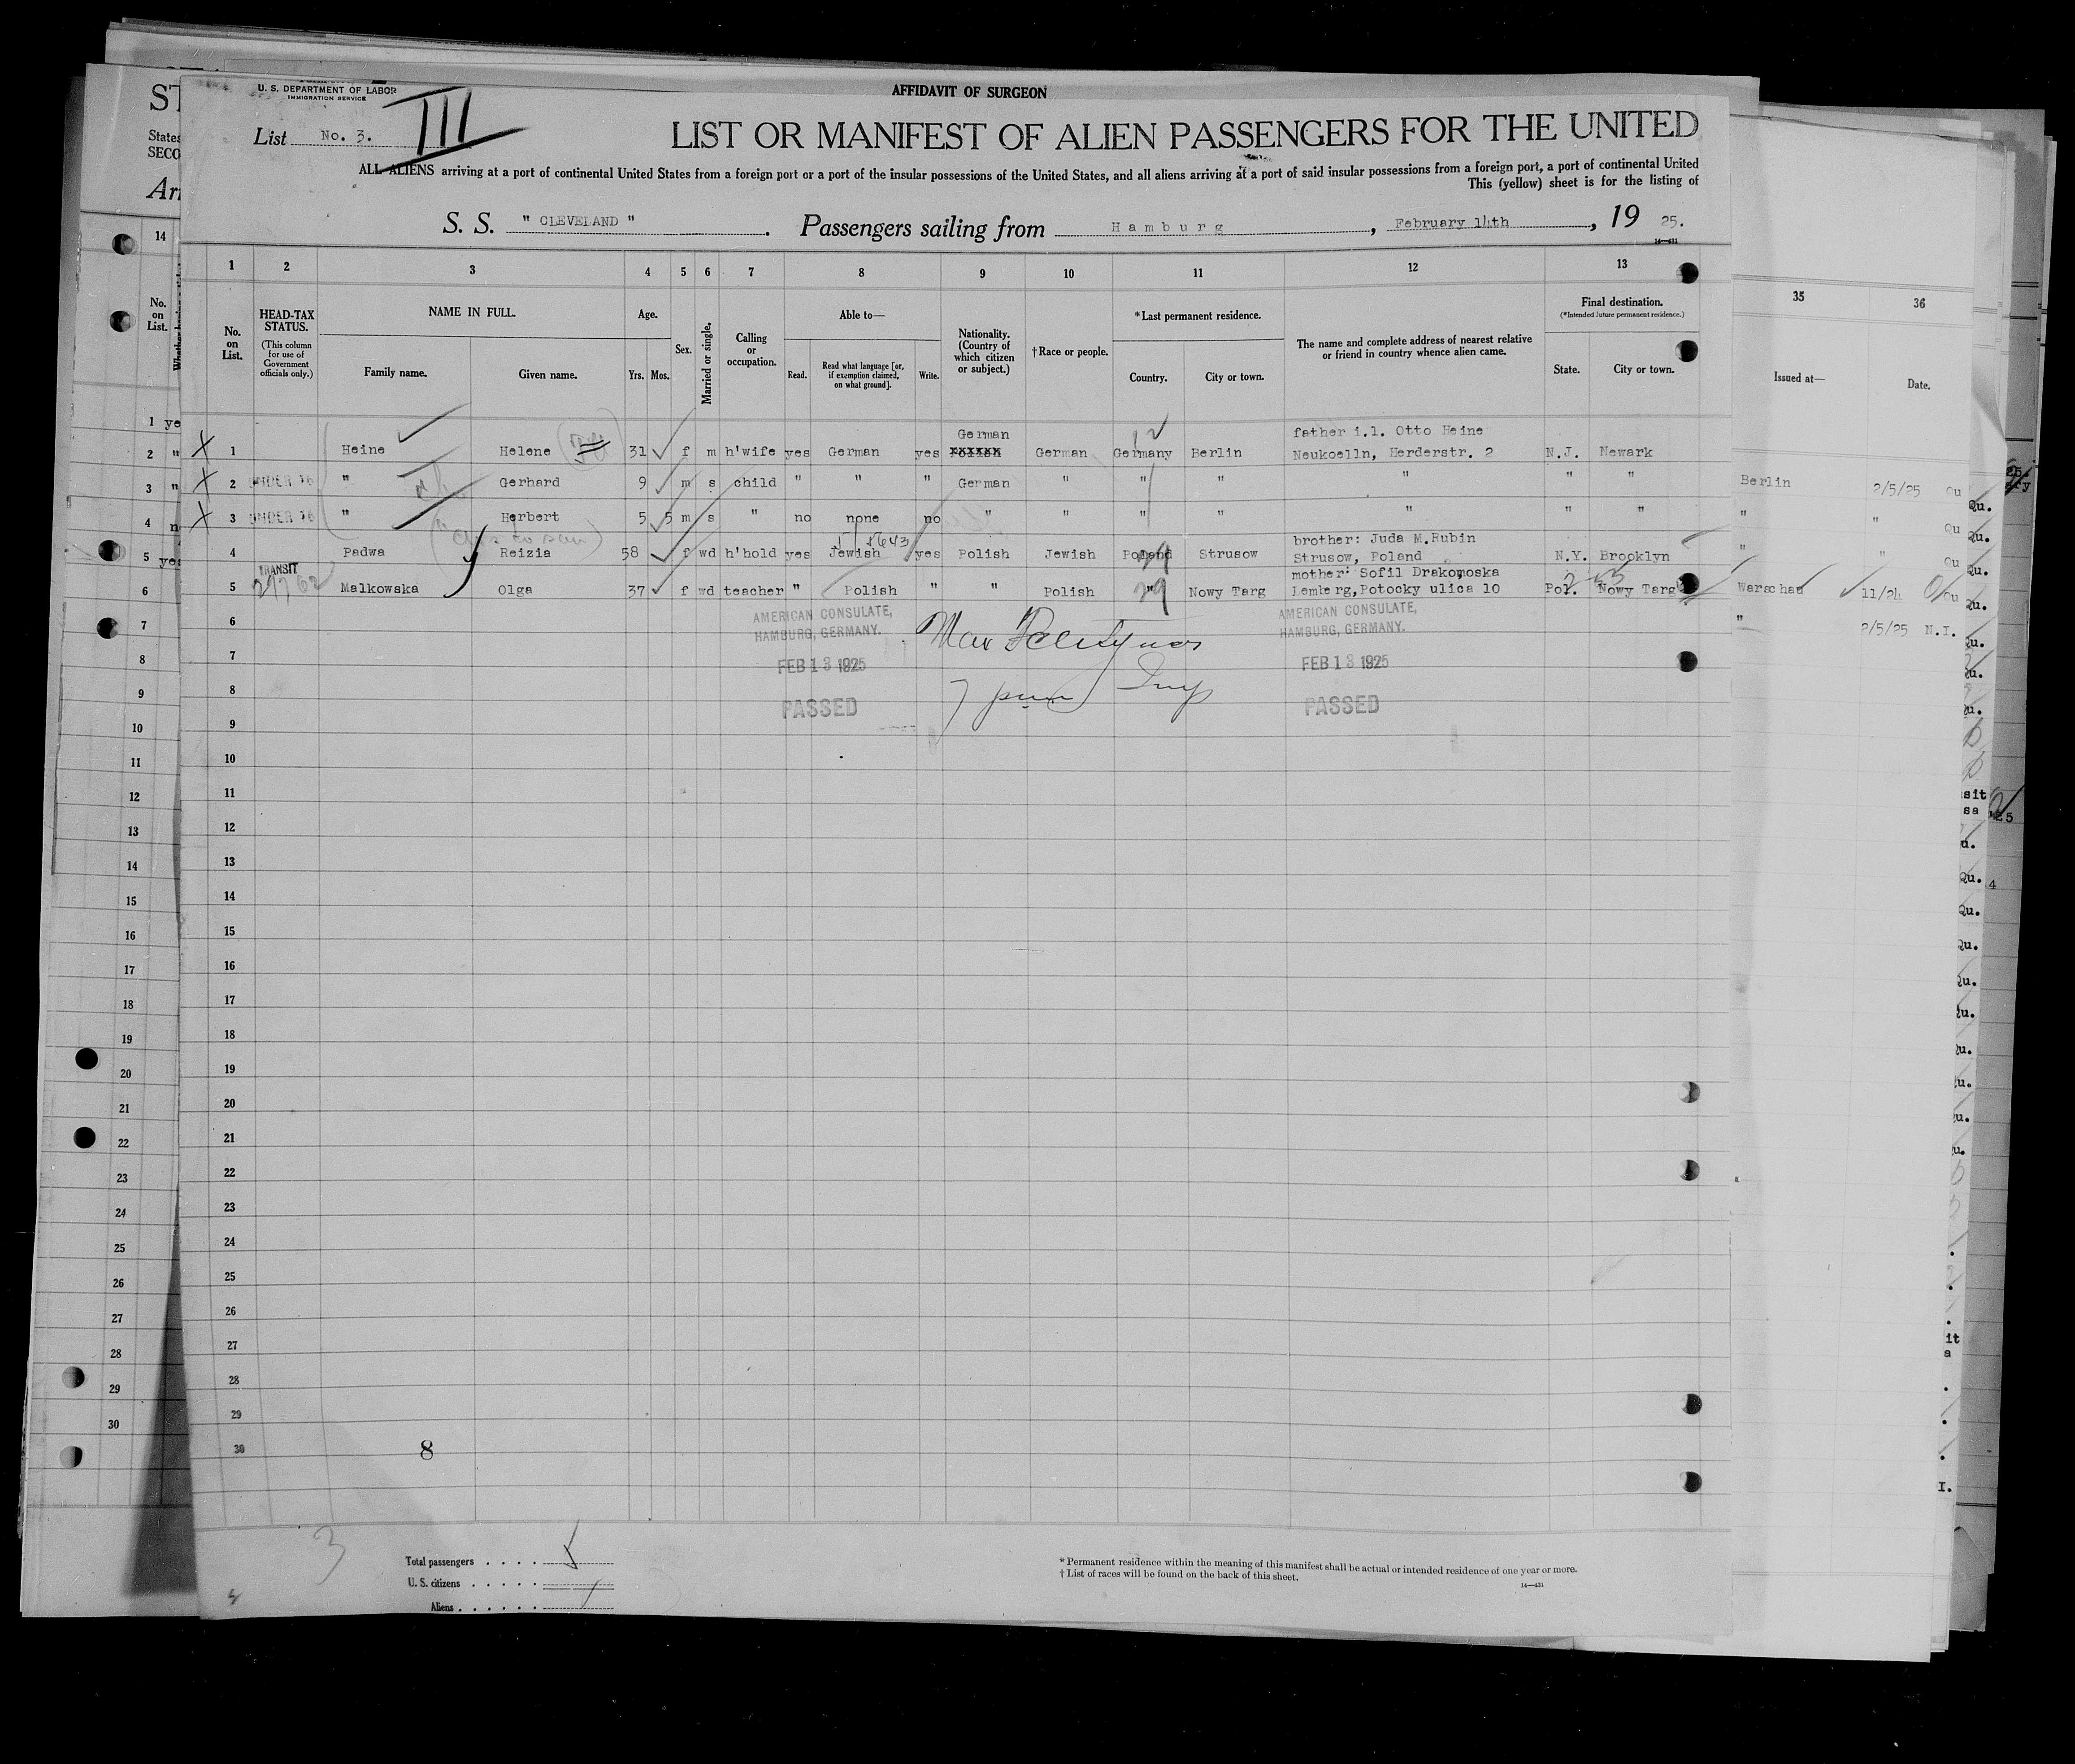 AFFIDAVIT OF SURGEON
U. S. DEPARTMENT OF LABOR
IMMIGRATION SERVICE
III
List No. 3.
LIST OR MANIFEST OF ALIEN PASSENGERS FOR THE UNITED
ALL ALIENS arriving at a port of continental United States from a foreign port or a port of the insular possessions of the United States, and all aliens arriving at a port of said insular possessions from a foreign port, a port of continental United
This (yellow) sheet is for the listing of
S. S. " CLEVELAND " . Passengers sailing from Hamburg , February 14th , 19 25.
14—431
1 2 3 4 5 6 7 8 9 10 11 12 13
No. on List.
HEAD-TAX STATUS.
(This column for use of Government officials only.)
NAME IN FULL.
Family name. Given name.
Age.
Yrs. Mos.
Sex.
Married or single.
Calling or occupation.
Able to—
Read. Read what language [or, if exemption claimed, on what ground]. Write.
Nationality. (Country of which citizen or subject.)
†Race or people.
*Last permanent residence.
Country. City or town.
The name and complete address of nearest relative or friend in country whence alien came.
Final destination.
(*Intended future permanent residence.)
State. City or town.
German father i.l. Otto Heine
X 1 Heine Helene 31 f m h'wife yes German yes German Germany Berlin Neukoelln, Herderstr. 2 N.J. Newark
X 2 UNDER 16 " Gerhard 9 m s child " " " German " " " " " "
X 3 UNDER 16 " Herbert 5 5 m s " no none no " " " " " " "
brother: Juda M.Rubin
4 Padwa Reizia 58 f wd h'hold yes Jewish yes Polish Jewish Poland Strusow Strusow, Poland N.Y. Brooklyn
TRANSIT mother: Sofil Drakomoska
5 Malkowska Olga 37 f wd teacher " Polish " " Polish " Nowy Targ Lemberg,Potocky ulica 10 Pol. Nowy Targ
6
AMERICAN CONSULATE, HAMBURG, GERMANY.
FEB 13 1925
PASSED
AMERICAN CONSULATE, HAMBURG, GERMANY.
FEB 13 1925
PASSED
7
8
9
10
11
12
13
14
15
16
17
18
19
20
21
22
23
24
25
26
27
28
29
30
8
3
Total passengers . . . . 5
U. S. citizens . . . . .
Aliens . . . . . .
* Permanent residence within the meaning of this manifest shall be actual or intended residence of one year or more.
† List of races will be found on the back of this sheet.
14—431
ST
States
SECO
14
No. on List.
1 ye
2 "
3 "
4 n
5 yes
6
7
8
9
10
11
12
13
14
15
16
17
18
19
20
21
22
23
24
25
26
27
28
29
30
35 36
Issued at— Date.
Berlin 2/5/25 Qu
" " Qu
" " Qu
Warschau 11/24 Qu
" 2/5/25 N.I.